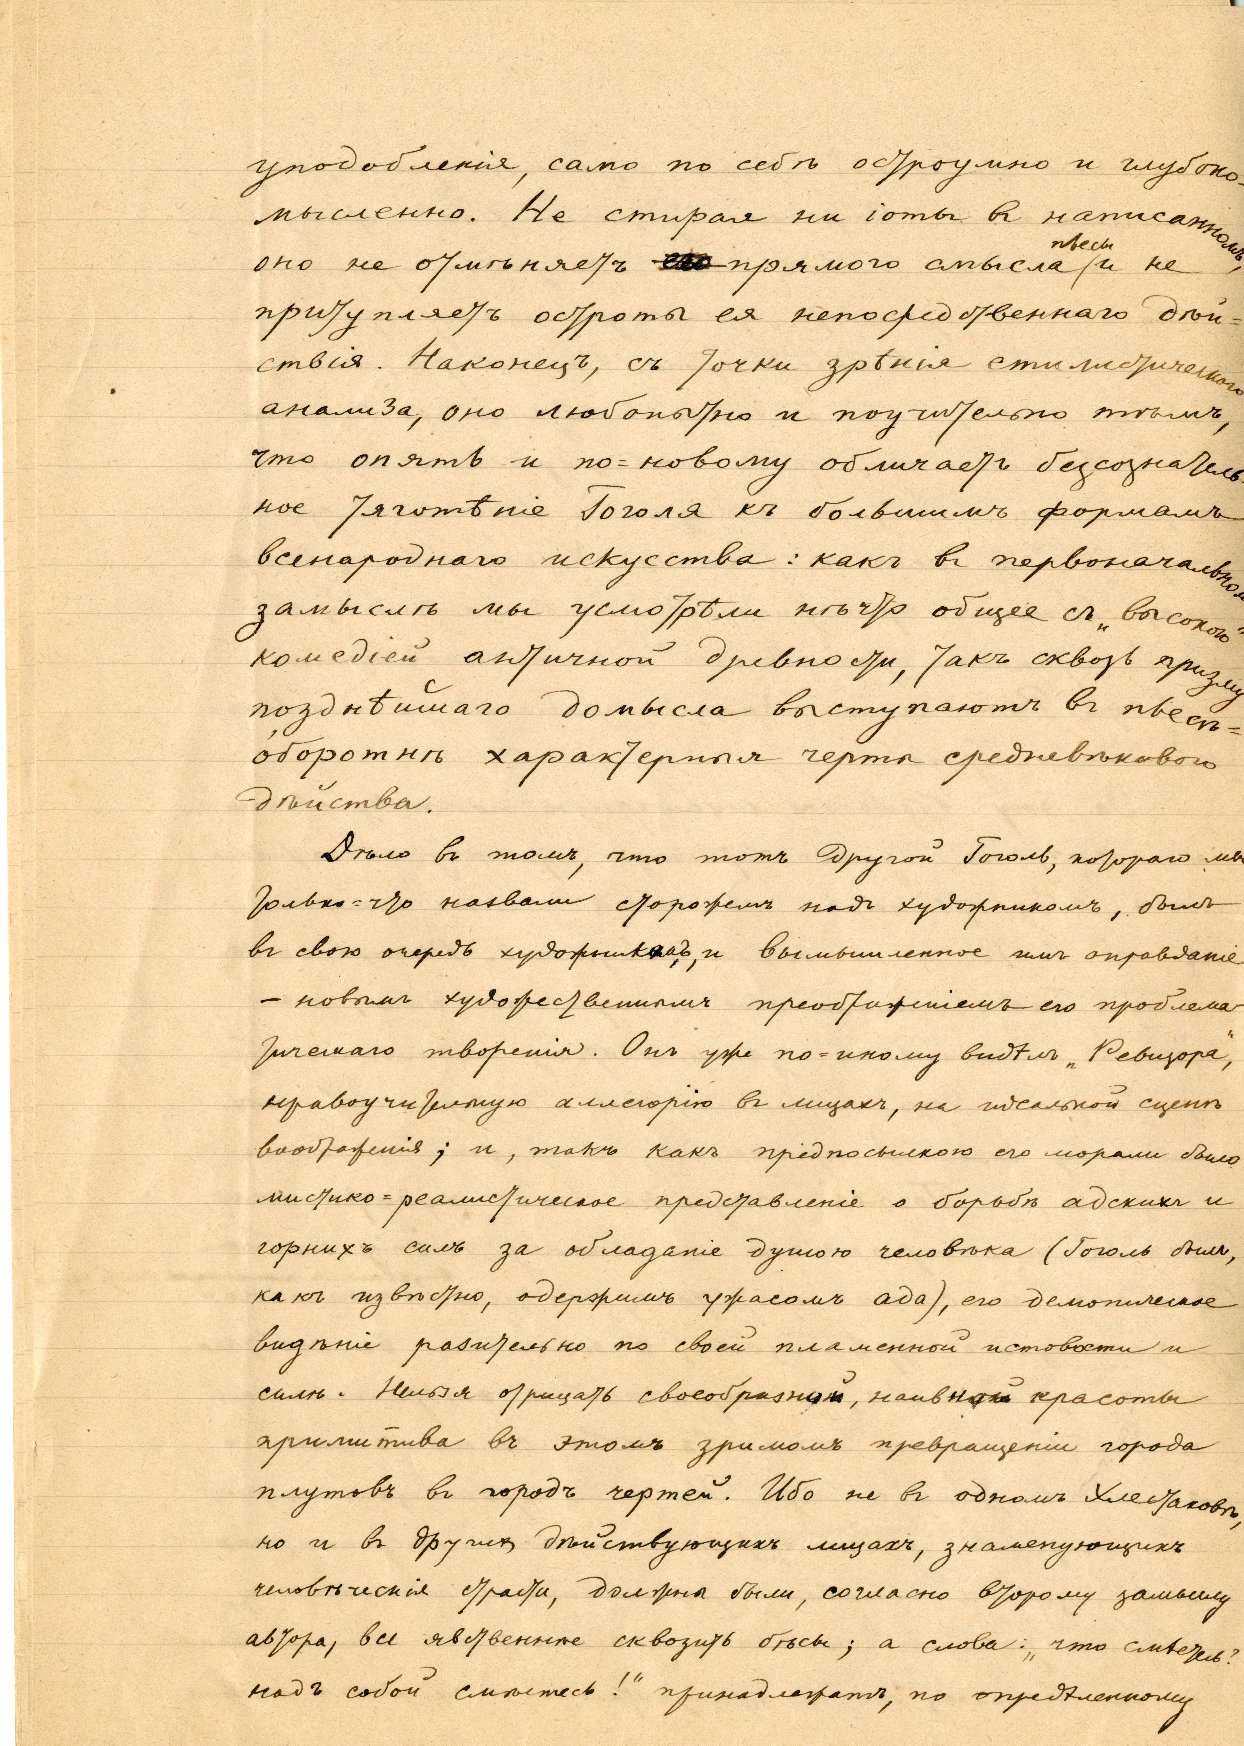 уподобленія, само по себѣ остроумно и глубоко-
мысленно. Не стирая ни іоты въ написанномъ,
оно не отмѣняетъ прямого смысла пьесы и не
притупляетъ остроты ея непосредственнаго дѣй=
ствія. Наконецъ, съ точки зрѣнія стилистическаго
анализа, оно любопытно и поучительно тѣмъ,
что опять и по=новому обличаетъ безсознатель-
ное тяготѣніе Гоголя къ большимъ формамъ
всенароднаго искусства: какъ въ первоначальном
замыслѣ мы усмотрѣли нѣчто общее съ „высокою"
комедіей античной древности, такъ сквозь призму
позднѣйшаго домысла выступаютъ въ пьесѣ=
оборотнѣ характерныя черты средневѣковаго
дѣйства.
Дѣло въ томъ, что тотъ другой Гоголь, котораго мы
только=что назвали сторожемъ надъ художникомъ, былъ
въ свою очередь художникъ, и вымышленное имъ оправданіе
– новымъ художественнымъ преображеніемъ его проблема-
тическаго творенія. Онъ уже по=иному видѣлъ „Ревизора",
нравоучительную аллегорію въ лицахъ, на идеальной сценѣ
воображенія; и, такъ какъ предпосылкою его морали было
мистико=реалистическое представленіе о борьбѣ адскихъ и
горнихъ силъ за обладаніе душою человѣка (Гоголь былъ,
какъ извѣстно, одержимъ ужасомъ ада), его демоническое
видѣніе разительно по своей пламенной истовости и
силѣ. Нельзя отрицать своеобразной, наивной красоты
примитива въ этомъ зримомъ превращеніи города
плутовъ въ городъ чертей. Ибо не въ одномъ Хлестаковѣ,
но и въ другихъ дѣйствующихъ лицахъ, знаменующихъ
человѣческія страсти, должны были, согласно второму замыслу
автора, все явственнѣе сквозить бѣсы; а слова: „что смѣетесь?
надъ собой смѣетесь!" принадлежатъ, по опредѣленному